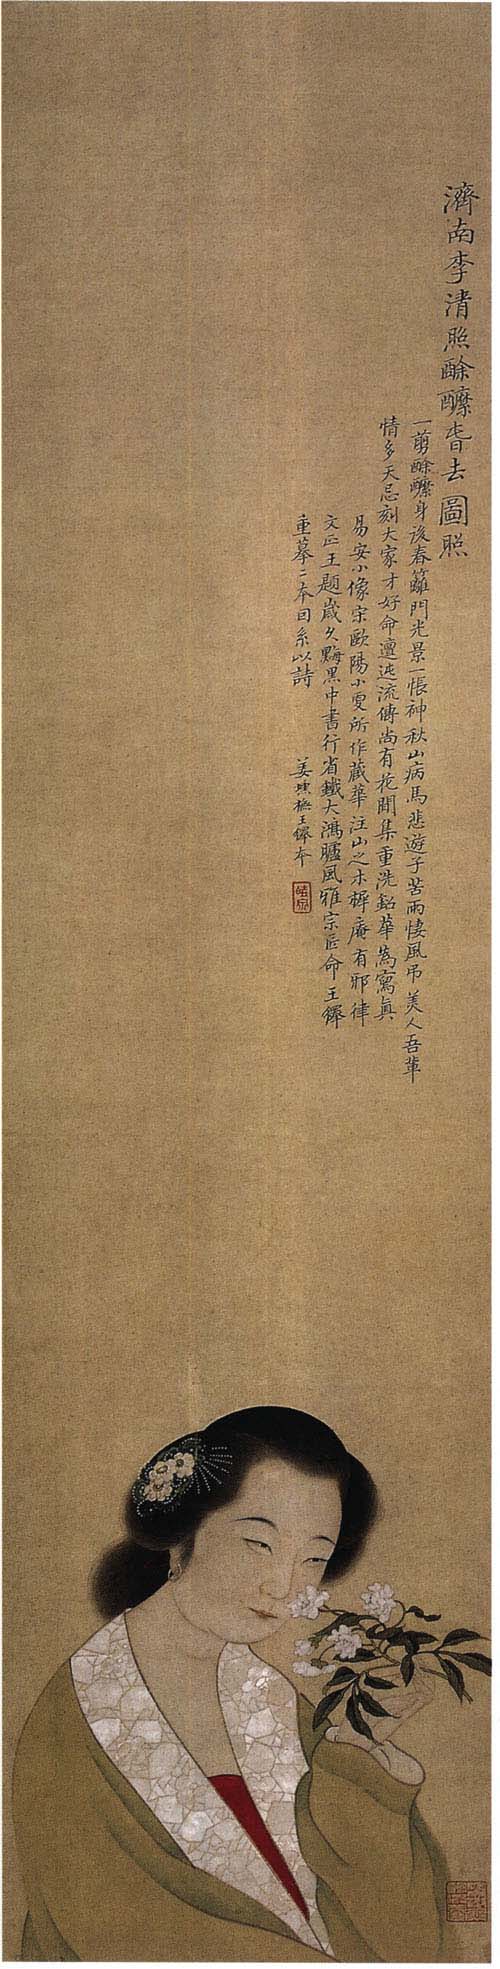 濟南李清照酴醾春去圖照
一剪酴醾身後春籬門光景一悵神秋山病馬悲遊子苦雨悽風吊美人吾輩
情多天忌刻大家才好命邅迍流傳尚有花閒集重洗鉛華為寫真
易安小像宋歐陽小雯所作藏華注山之木樨庵有邪律
文正王題歲久黝黑中書行省鐵大鴻臚風雅宗匠命王鐸
重摹二本因系以詩
姜壎撫王鐸本